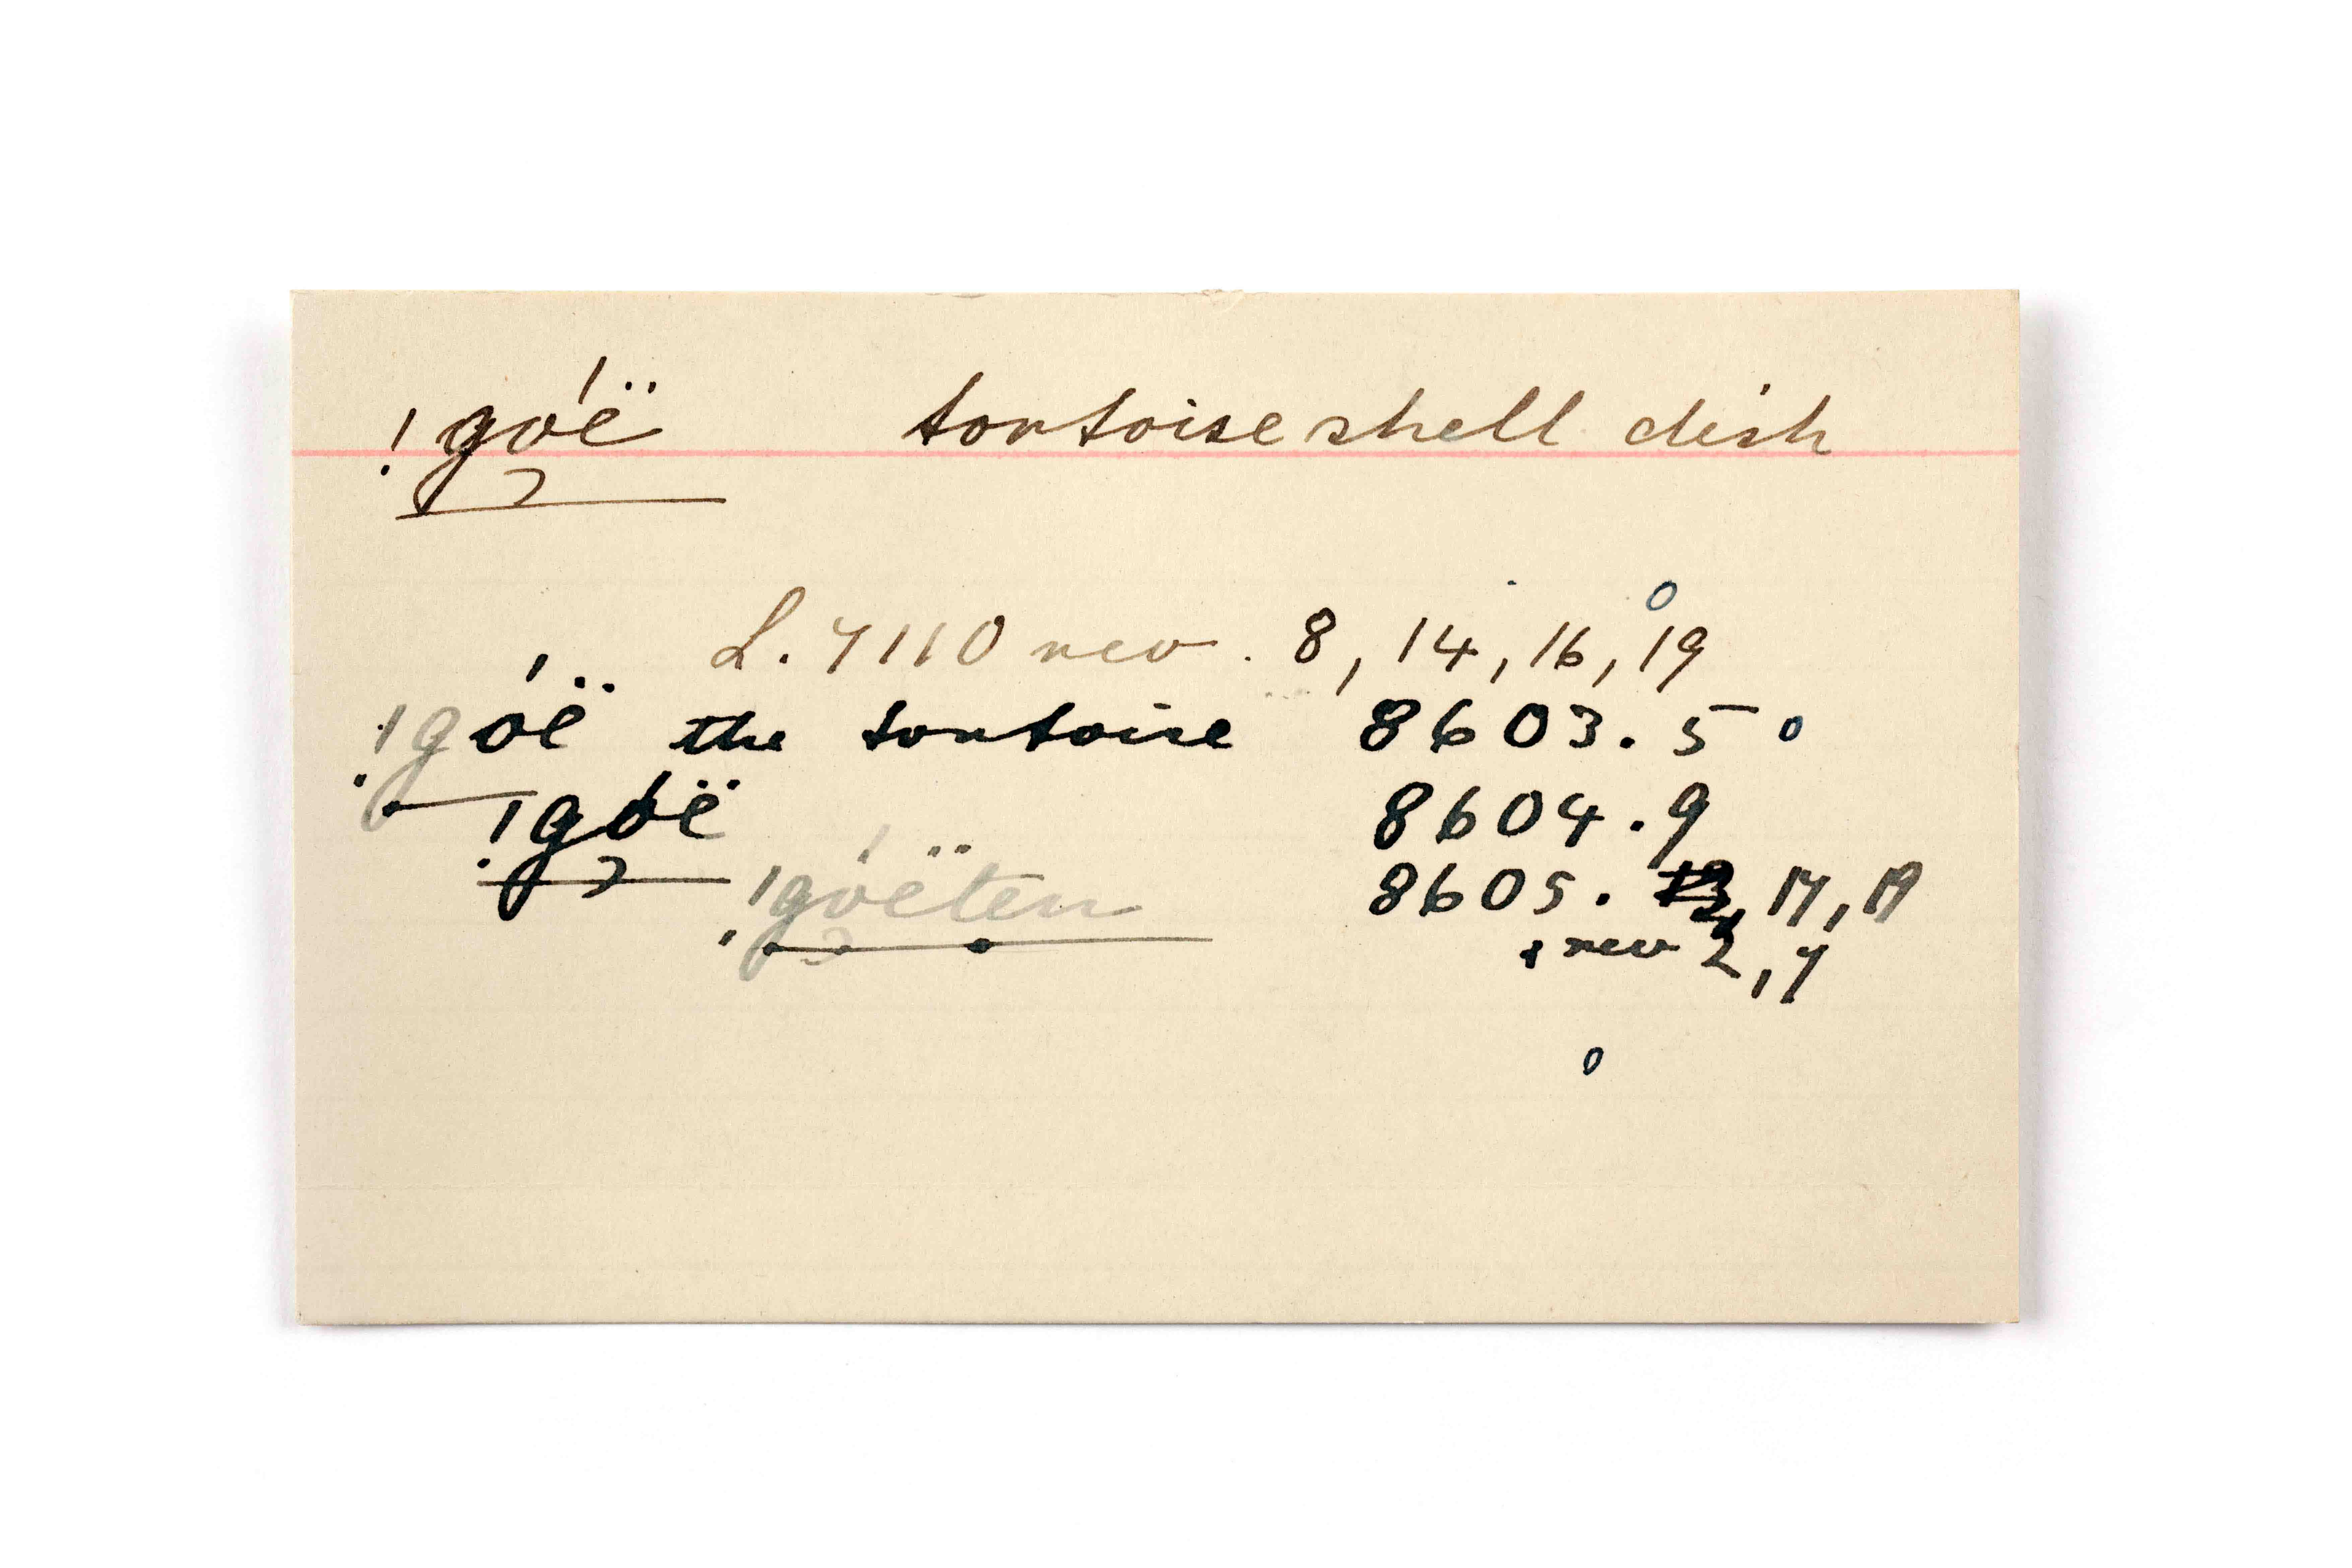 !góë̤ tortoiseshell dish
L. 7110 rev. 8, 14, 16, 19
!góë the tortoise 8603. 5
!góë 8604. 9
!góëten 8605. 17, 19
& rev 2, 7